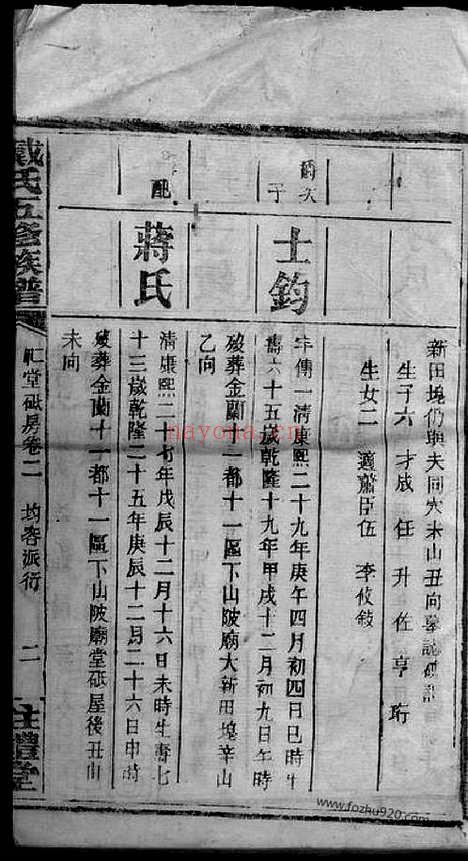 新田塊仍與夫同穴未山丑向
生子六 才成 任 升 佐 亨 珩
生女二 適蕭臣伍 李攸敍
次子
士鈞
年傳一清康熙二十九年庚午四月初四日巳時生
壽六十五歲乾隆十九年甲戌十二月初九日午時
歿葬金蘭十一都十一區下山陂廟大新田塊辛山
乙向
配
蔣氏
清康熙二十七年戊辰十二月十六日未時生壽七
十三歲乾隆二十五年庚辰十二月二十六日申時
歿葬金蘭十一都十一區下山陂廟堂砥屋後丑山
未向
戴氏五修族譜
砥房卷二 均容派行 二
注禮堂
nayona.cn
www.fozhu920.com